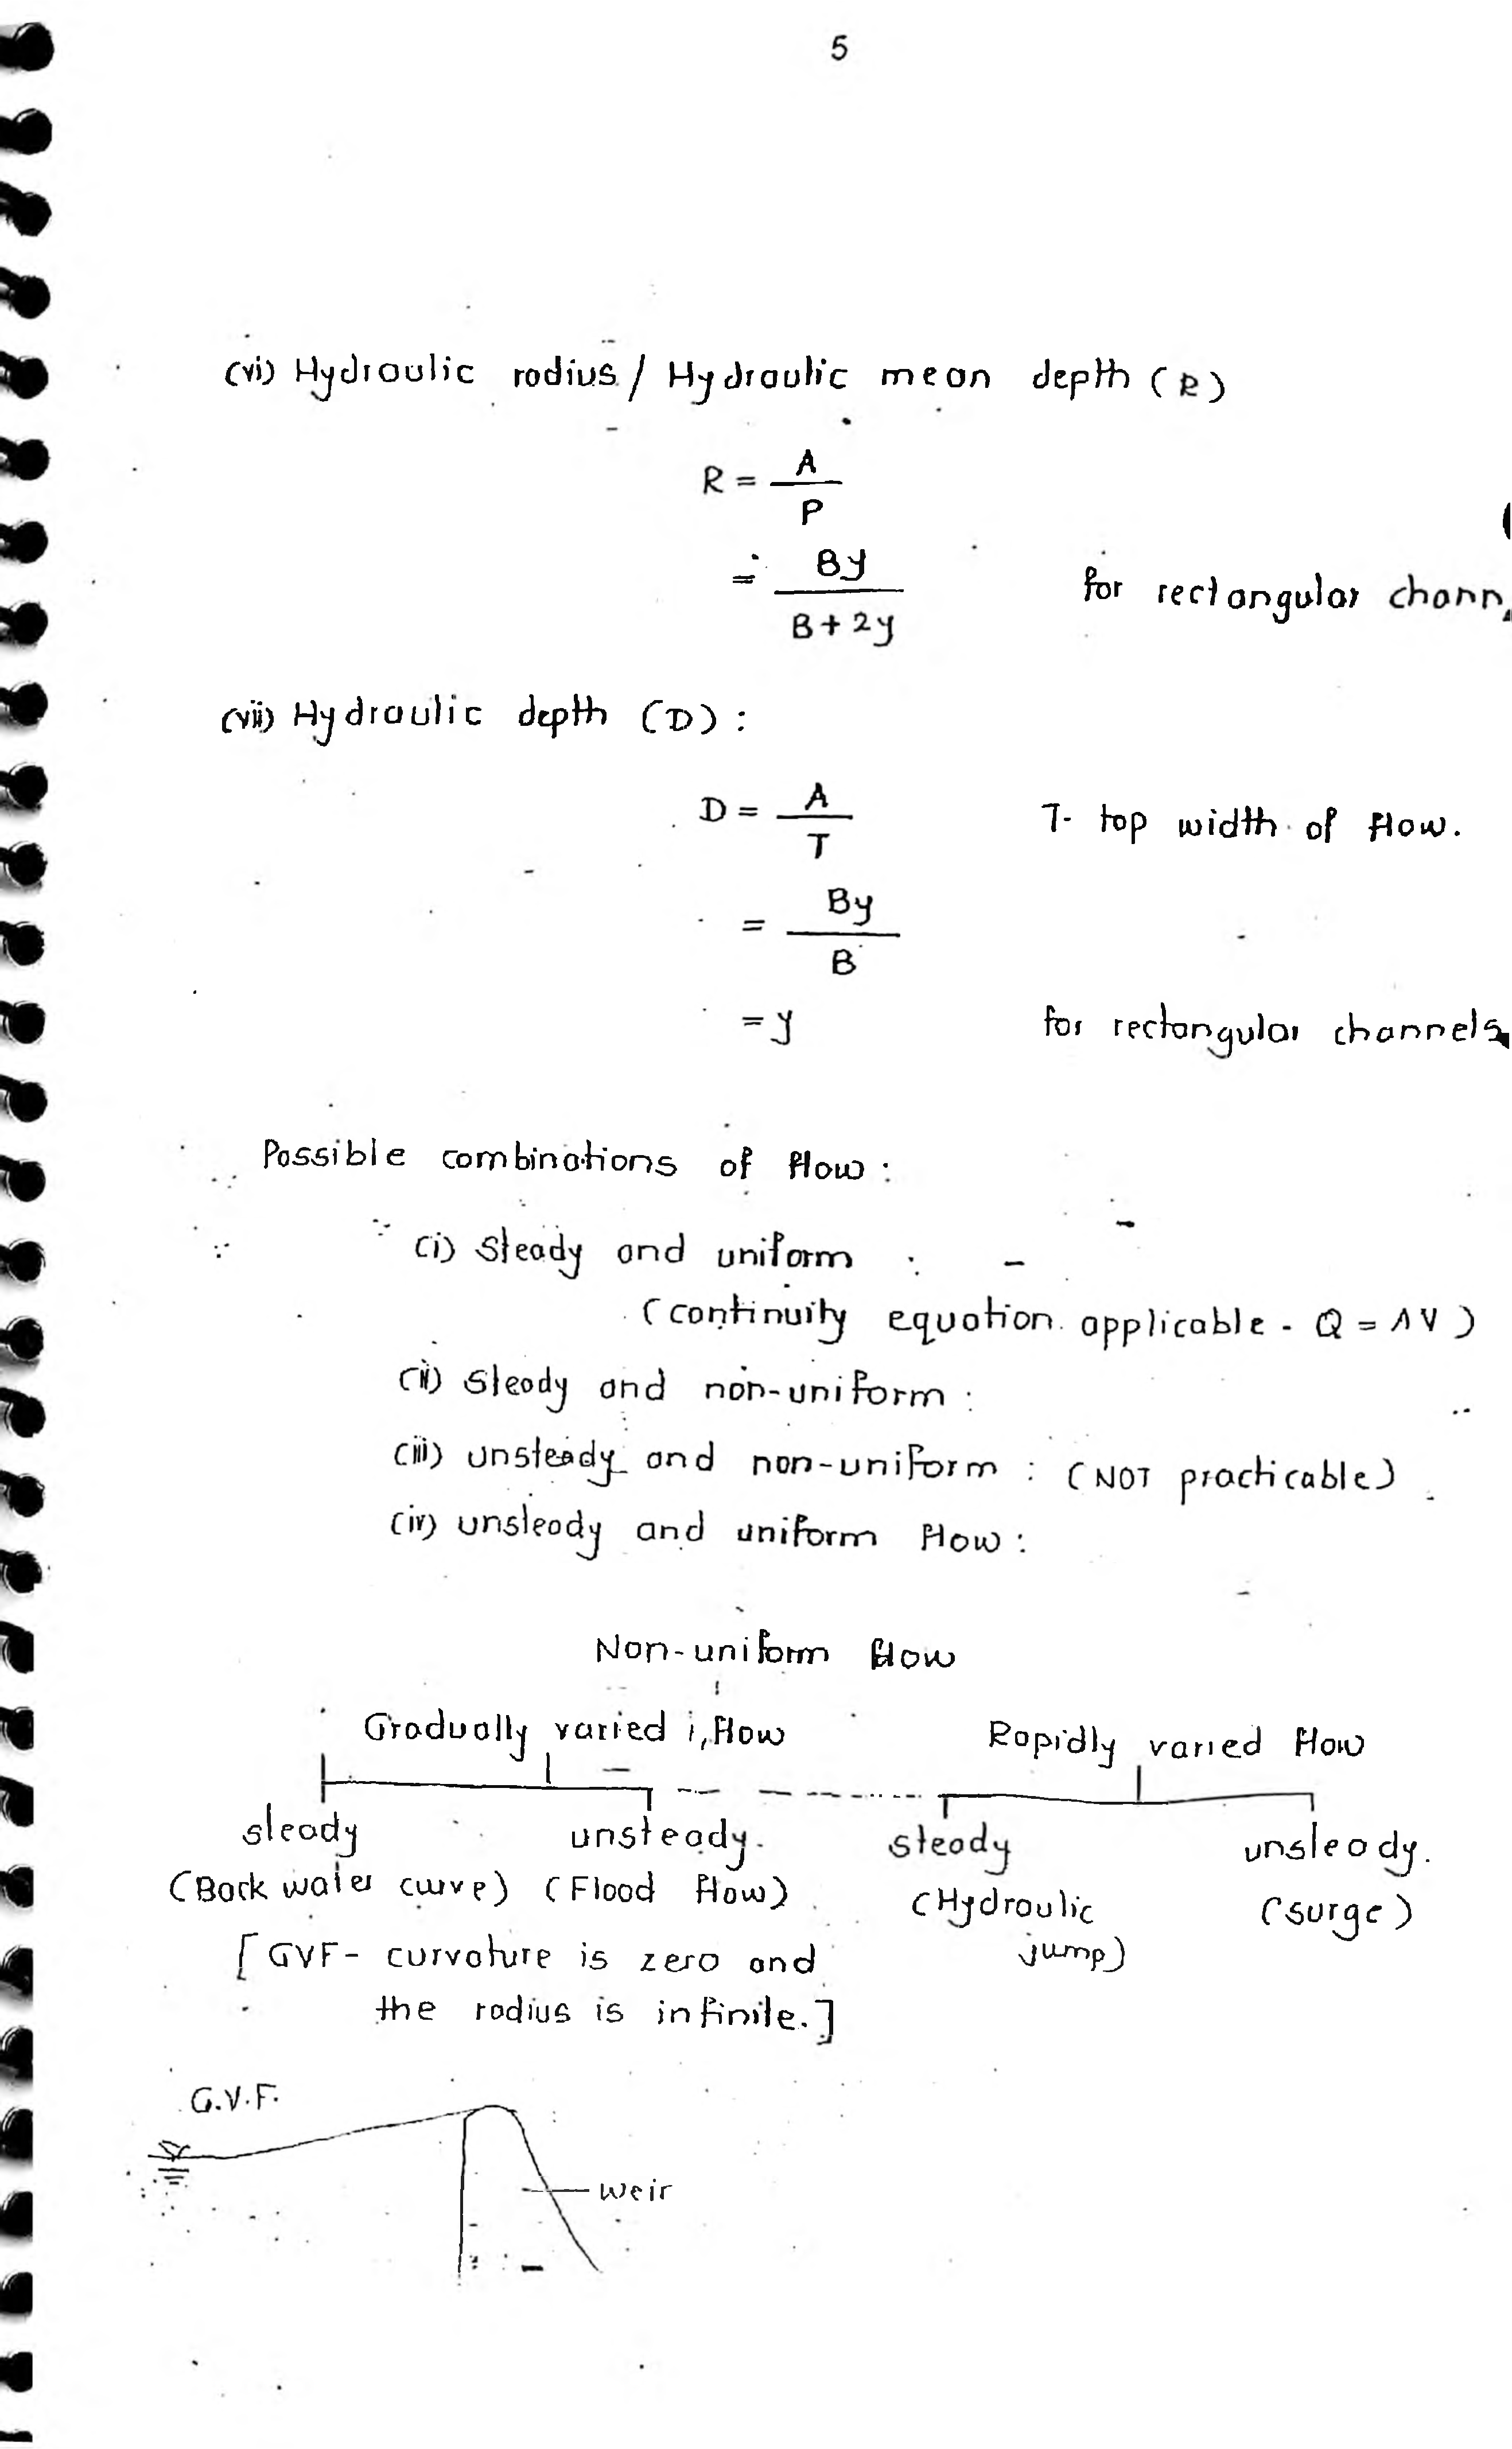 5
(vi) Hydraulic radius / Hydraulic mean depth (R)
R = A / P
= By / B + 2y for rectangular chann
(vii) Hydraulic depth (D) :
D = A / T T - top width of flow.
= By / B
= y for rectangular channels
Possible combinations of flow :
(i) steady and uniform :
(continuity equation applicable - Q = AV )
(ii) steady and non-uniform :
(iii) unsteady and non-uniform : (NOT practicable)
(iv) unsteady and uniform flow :
Non-uniform flow
Gradually varied flow Rapidly varied flow
steady unsteady. steady unsteady.
(Back water curve) (Flood flow) (Hydraulic jump) (surge)
[GVF - curvature is zero and
the radius is infinite.]
G.V.F.
weir